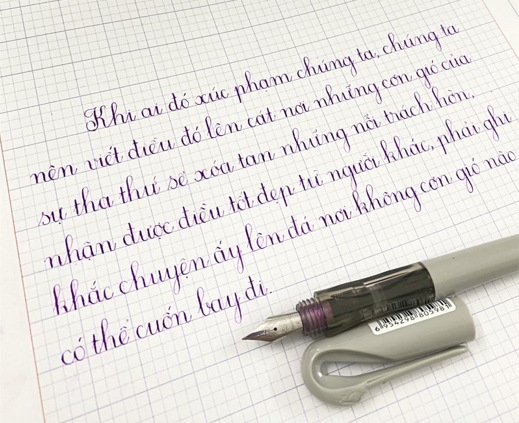 Khi ai đó xúc phạm chúng ta, chúng ta
nên viết điều đó lên cát nơi những cơn gió của
sự tha thứ sẽ xóa tan những nỗi trách hờn.
nhận được điều tốt đẹp từ người khác, phải ghi
khắc chuyện ấy lên đá nơi không cơn gió nào
có thể cuốn bay đi.
6954298805981